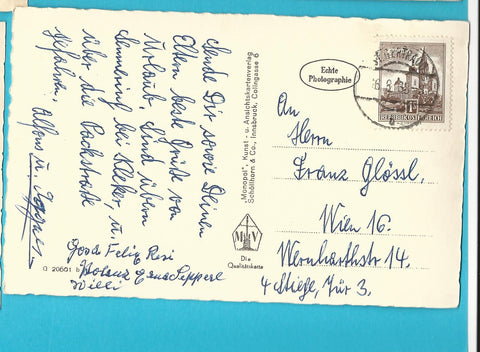 Sende Dir sowie Deinen
Eltern beste Grüße vom
Urlaub. Sind übern
Semmering bei Kleker, u.
über die Packstraße
gefahren. Alfons u.
Good Felix Resi
Willi
G 20601 b
"Monopol", Kunst- u. Ansichtskartenverlag
Schöllhorn & Co., Innsbruck, Colingasse 6
M V
Die
Qualitätskarte
Echte
Photographie
REPUBLIK ÖSTERREICH
An
Herrn
Franz Glössl.
Wien 16.
Wernhardtstr 14.
4 Stiege, Tür 3.